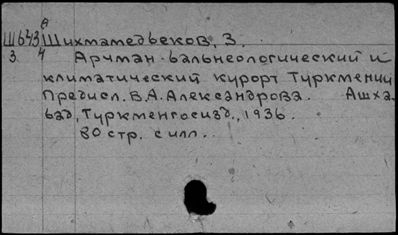 А
Ш643 Шихмамедбеков, З.
3 4 Арчман - бальнеологический и
климатический курорт Туркмении
Предисл. В.А. Александрова. Ашха-
бад, Туркменгосизд., 1936.
80 стр. с илл.